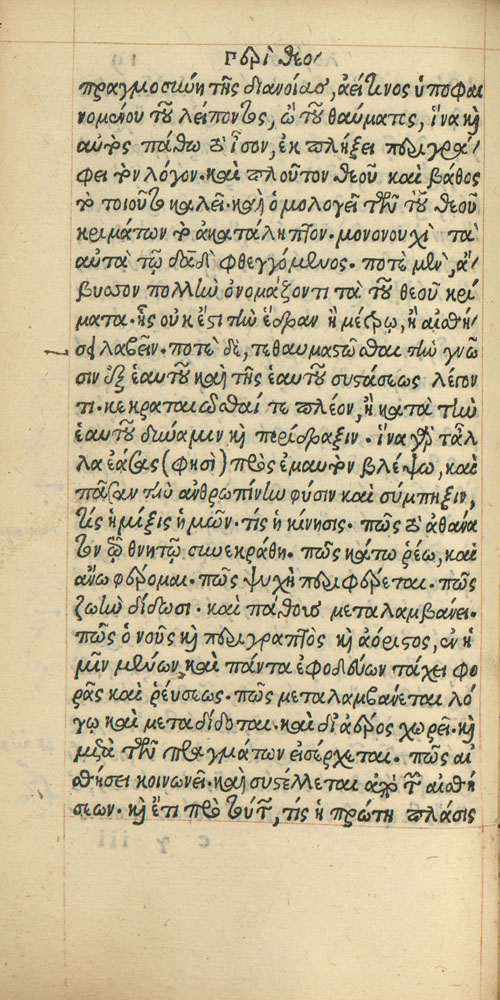 Περὶ θεο/
πραγμοσύνη τῆς διανοίας, ἀεί τινος ὑποφαι
νομένου τοῦ λείποντος, ὢ τοῦ θαύματος, ἵνα καὶ
αὐτὸς πάθω τὸ ἶσον, ἐκ πλήξει περιγρά/
φει τὸν λόγον. καὶ πλοῦτον θεοῦ καὶ βάθος
τὸ τοιοῦτο καλεῖ. καὶ ὁμολογεῖ τῶν τοῦ θεοῦ
κριμάτων τὸ ἀκατάληπτον. μονονουχὶ τὰ
αὐτὰ τῷ δᾱδ φθεγγόμενος. ποτὲ μὲν, ἄ/
βυσσον πολλὴν ὀνομάζοντι τὰ τοῦ θεοῦ κρί
ματα. ἧς οὐκ ἔστι τὴν ἕδραν ἢ μέτρῳ, ἢ αἰσθή/
σει λαβεῖν. ποτὲ δὲ, τεθαυμαστῶσθαι τὴν γνῶ
σιν ἐξ ἑαυτοῦ καὶ τῆς ἑαυτοῦ συστάσεως λέγον
τι. κεκραταιῶσθαί τε πλέον, ἢ κατὰ τὴν
ἑαυτοῦ δύναμιν καὶ περίδραξιν. ἵνα γὰρ τἄλ
λα ἐάσας (φησὶ) πρὸς ἐμαυτὸν βλέψω, καὶ
πᾶσαν τὴν ἀνθρωπίνην φύσιν καὶ σύμπηξιν,
τίς ἡ μίξις ἡμῶν. τίς ἡ κίνησις. πῶς τὸ ἀθάνα
τον τῷ θνητῷ συνεκράθη. πῶς κάτω ῥέω, καὶ
ἄνω φέρομαι. πῶς ψυχὴ περιφέρεται. πῶς
ζωὴν δίδωσι. καὶ πάθους μεταλαμβάνει.
πῶς ὁ νοῦς καὶ περιγραπτὸς καὶ ἀόριστος, ἐν ἡ
μῖν μένων, καὶ πάντα ἐφοδεύων τάχει φο
ρᾶς καὶ ῥεύσεως. πῶς μεταλαμβάνεται λό
γῳ καὶ μεταδίδοται. καὶ δι' ἀέρος χωρεῖ. καὶ
μετὰ τῶν πραγμάτων εἰσέρχεται. πῶς αἰ
σθήσει κοινωνεῖ. καὶ συστέλλεται ἀπὸ τῶν αἰσθή
σεων. καὶ ἔτι πρὸ τούτων, τίς ἡ πρώτη πλάσις